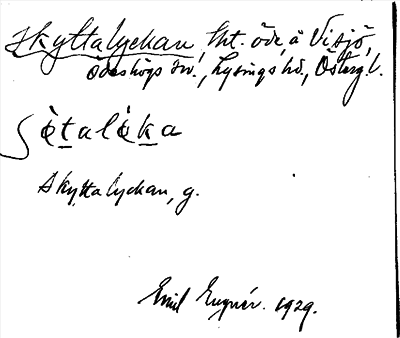 Skyttalyckan, tht. öde, å Visjö,
Ödeshögs sn., Lysings hd., Östergl.
ʃɵ̀talɵ̀ka
Skyttalyckan, g.
Emil Eugnér. 1929.